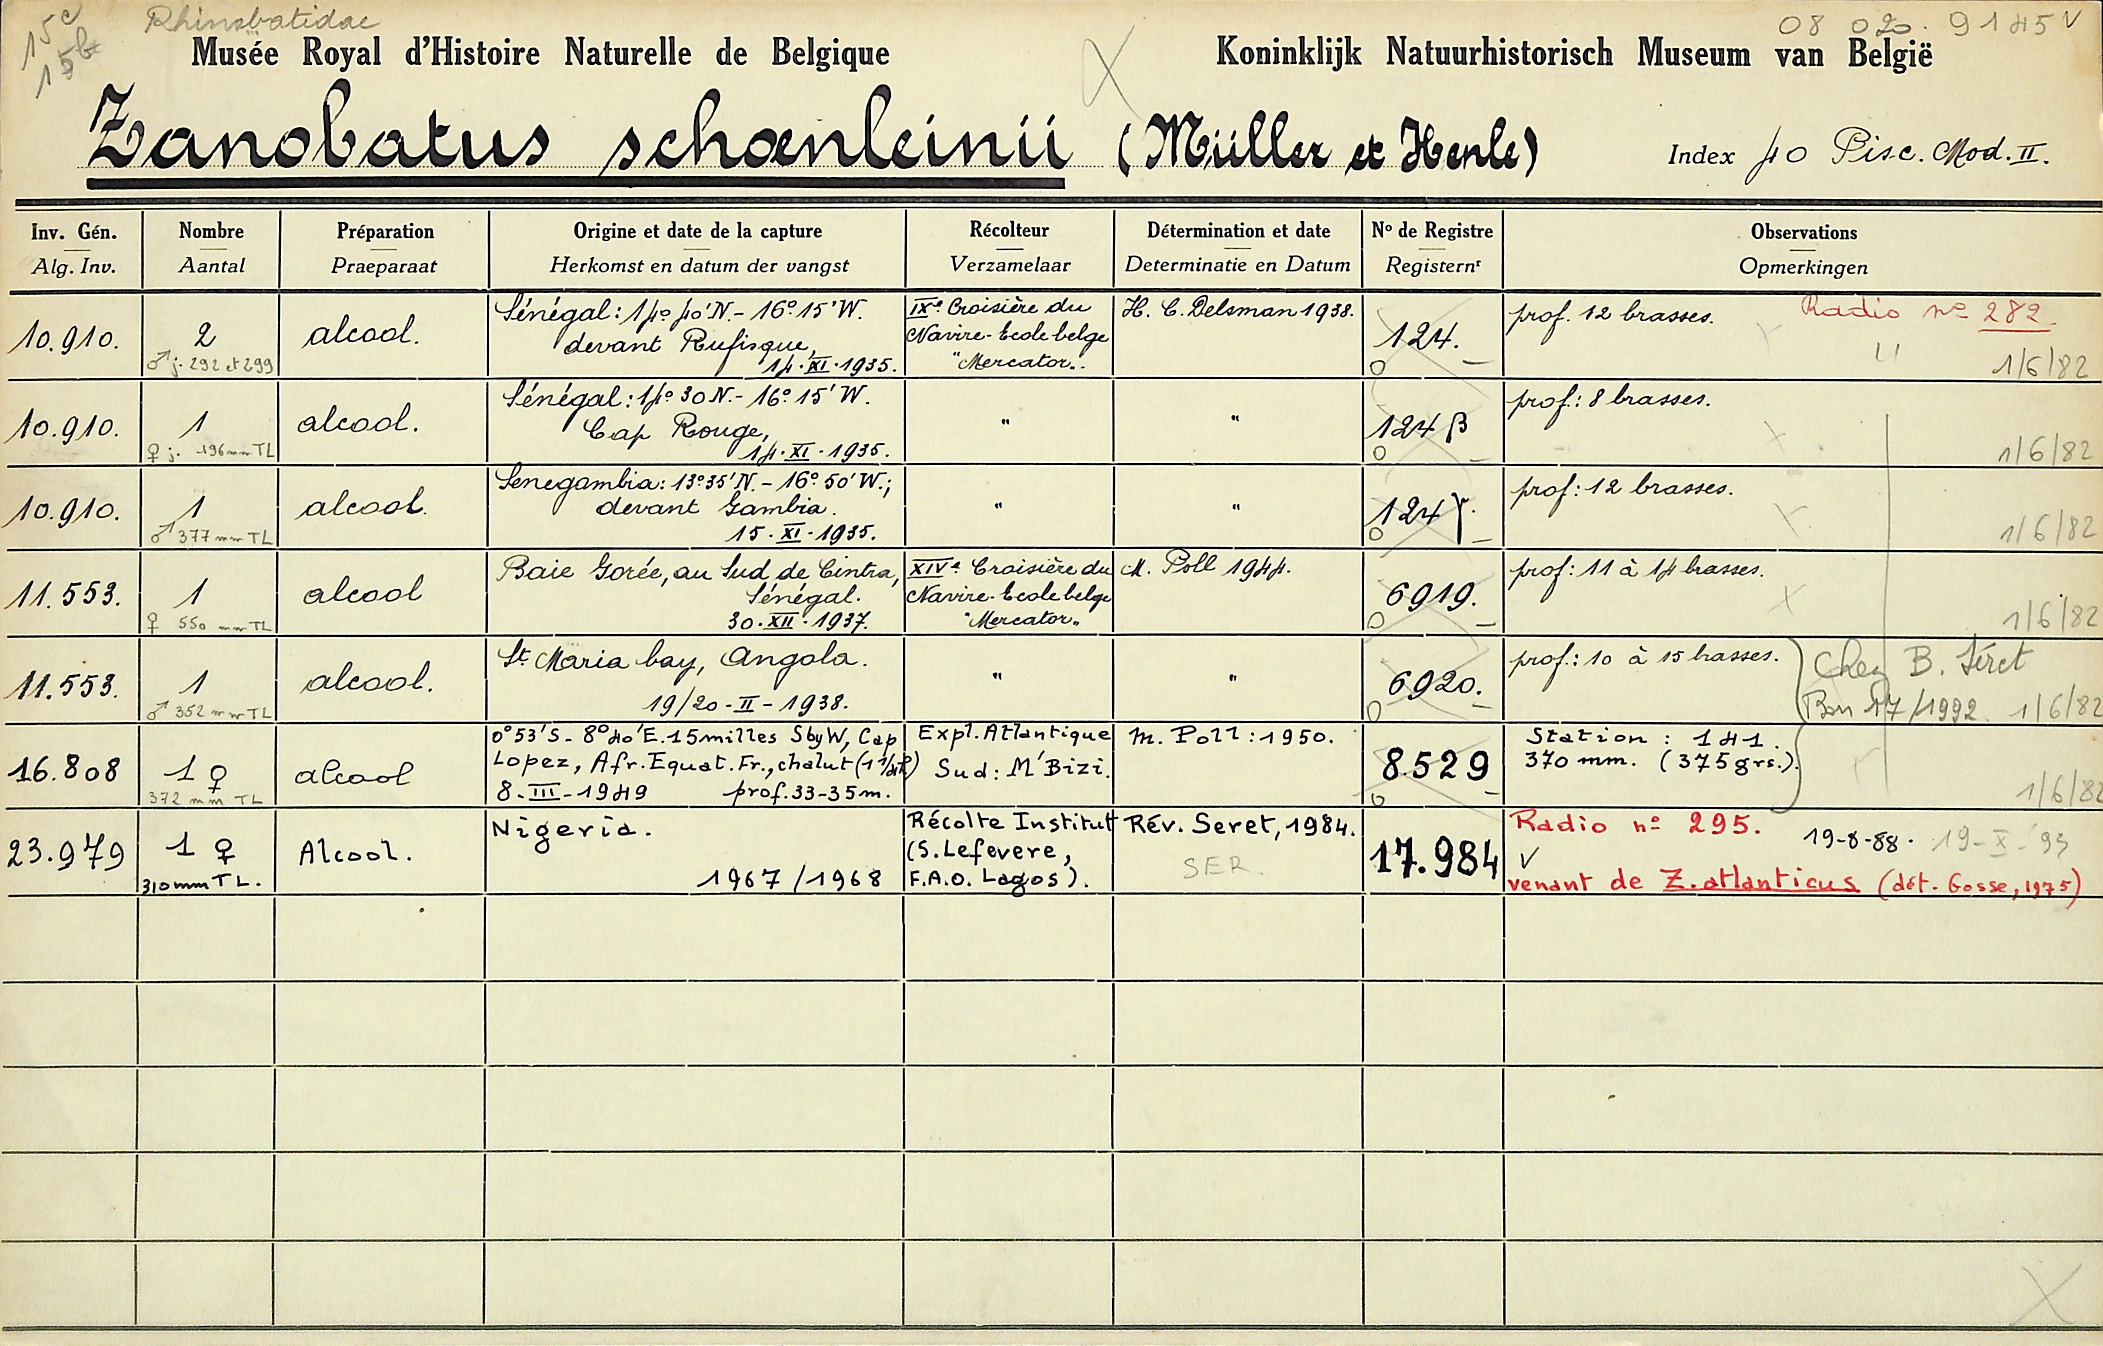 15c Rhinobatidae 08 020. 9145 V
15b
Musée Royal d'Histoire Naturelle de Belgique Koninklijk Natuurhistorisch Museum van België
Zanobatus schœnleinii (Müller et Henle) Index 40 Pisc. Mod. II.
Inv. Gén. Nombre Préparation Origine et date de la capture Récolteur Détermination et date No de Registre Observations
Alg. Inv. Aantal Praeparaat Herkomst en datum der vangst Verzamelaar Determinatie en Datum Registernr Opmerkingen
10.910. 2 ♂ j. 292 et 299 alcool.
Sénégal: 14° 40' N. - 16° 15' W.
devant Rufisque,
14.XI.1935.
IXe Croisière du
Navire-Ecole belge
"Mercator".
H. C. Delsman 1938.
124.
prof. 12 brasses. Radio no 282.
1/6/82
10.910. 1 ♀ j. 196 mm TL alcool.
Sénégal: 14° 30 N. - 16° 15' W.
Cap Rouge,
14.XI.1935.
" "
124 β
prof.: 8 brasses.
1/6/82
10.910. 1 ♂ 377 mm TL alcool.
Senegambia: 13°35' N. - 16° 50' W.;
devant Gambia.
15.XI.1935.
" "
124 γ.
prof: 12 brasses.
1/6/82
11.553. 1 ♀ 550 mm TL alcool
Baie Gorée, au Sud de Cintra,
Sénégal.
30.XII.1937.
XIVe Croisière du
Navire-Ecole belge
"Mercator"
M. Poll 1944.
6919.
prof: 11 à 14 brasses.
1/6/82
11.553. 1 ♂ 352 mm TL alcool.
St Maria bay, Angola.
19/20-II-1938.
" "
6920.
prof.: 10 à 15 brasses.
Chez B. Séret
Bon 17/1992 1/6/82
16.808 1 ♀ 372 mm TL alcool
0°53'S - 8°40'E. 15 milles SbyW, Cap
Lopez, Afr. Equat. Fr., chalut
8-III-1949 prof. 33-35 m.
Expl. Atlantique
Sud: M'Bizi.
M. Poll: 1950.
8.529
Station: 141.
370 mm. (375 grs.).
1/6/82
23.979 1 ♀ 310 mm TL. Alcool.
Nigeria.
1967/1968
Récolte Institut
(S. Lefevere,
F.A.O. Lagos).
Rév. Seret, 1984.
SER.
17.984
Radio no 295. 19-8-88. 19-X-'93
V
venant de Z. atlanticus (dét. Gosse, 1975)